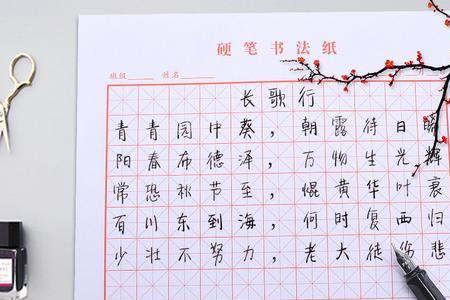 硬笔书法纸
班级 姓名 月
长歌行
青青园中葵，朝露待日晞
阳春布德泽，万物生光辉
常恐秋节至，焜黄华叶衰
百川东到海，何时复西归
少壮不努力，老大徒伤悲